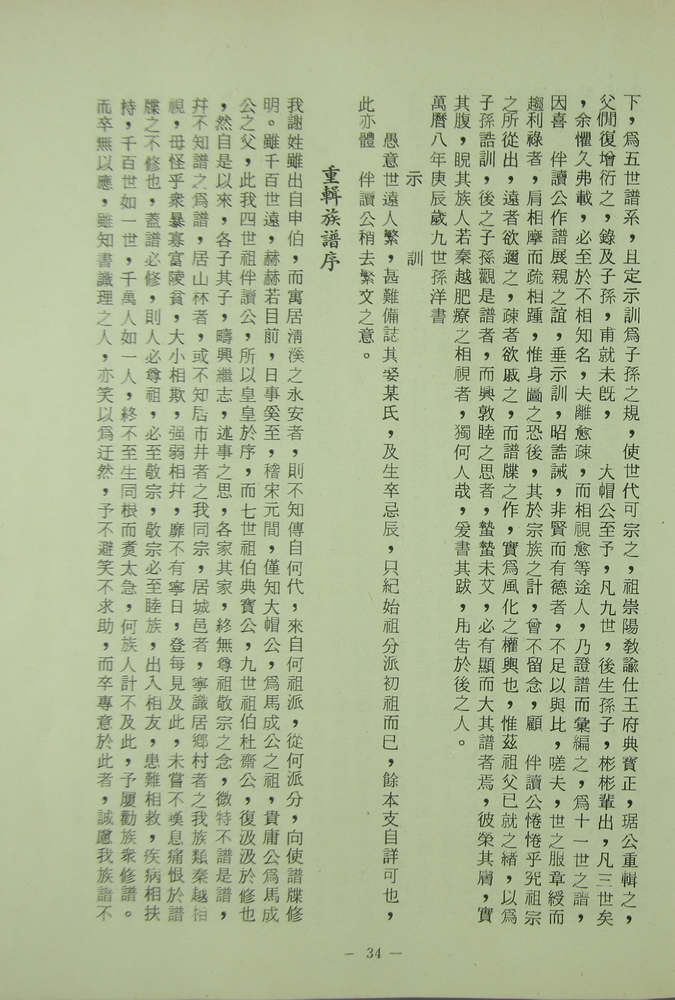 下，爲五世譜系，且定示訓爲子孫之規，使世代可宗之，祖崇陽敎諭仕王府典寶正，琚公重輯之，
父倜復增衍之，錄及子孫，甫就未旣，　　大帽公至予，凡九世，後生孫子，彬彬輩出，凡三世矣
，余懼久弗載，必至於不相知名，夫離愈疎，而相視愈等途人，乃證譜而彙編之，爲十一世之譜，
因喜　伴讀公作譜展親之誼，垂示訓，昭誥誡，非賢而有德者，不足以與比，嗟夫，世之服章綬而
趨利祿者，肩相摩而疏相踵，惟身圖之恐後，其於宗族之計，曾不留念，顧　伴讀公惓惓乎究祖宗
之所從出，遠者欲邇之，疎者欲戚之，而譜牒之作，實爲風化之權輿也，惟茲祖父已就之緒，以爲
子孫誥訓，後之子孫觀是譜者，而興敦睦之思者，蟄蟄未艾，必有顯而大其譜者焉，彼榮其膚，實
其腹，睨其族人若秦越肥瘠之相視者，獨何人哉，爰書其跋，用告於後之人。
萬曆八年庚辰歲九世孫洋書
示　　訓
愚意世遠人繁，甚難備誌其娶某氏，及生卒忌辰，只紀始祖分派初祖而已，餘本支自詳可也，
此亦體　伴讀公稍去繁文之意。
重輯族譜序
我謝姓雖出自申伯，而寓居淸溪之永安者，則不知傳自何代，來自何祖派，從何派分，向使譜牒修
明。雖千百世遠，赫赫若目前，日事奚至，稽宋元間，僅知大帽公，爲馬成公之祖，貴庸公爲馬成
公之父，此我四世祖伴讀公，所以皇皇於序，而七世祖伯典寶公，九世祖伯杜齋公，復汲汲於修也
，然自是以來，各子其子，疇興繼志，述事之思，各家其家，終無尊祖敬宗之念，微特不譜是譜，
幷不知譜之爲譜，居山林者，或不知后市井者之我同宗，居城邑者，寧識居鄉村者之我族類秦越相
視，毋怪乎衆暴寡富陵貧，大小相欺，强弱相幷，靡不有寧日，登每見及此，未嘗不嘆息痛恨於譜
牒之不修也，蓋譜必修，則人必尊祖，必至敬宗，敬宗必至睦族，出入相友，患難相救，疾病相扶
持，千百世如一世，千萬人如一人，終不至生同根而煑太急，何族人計不及此，予屢勸族衆修譜。
而卒無以應，雖知書識理之人，亦笑以爲迂然，予不避笑不求助，而卒專意於此者，誠慮我族譜不
— 34 —